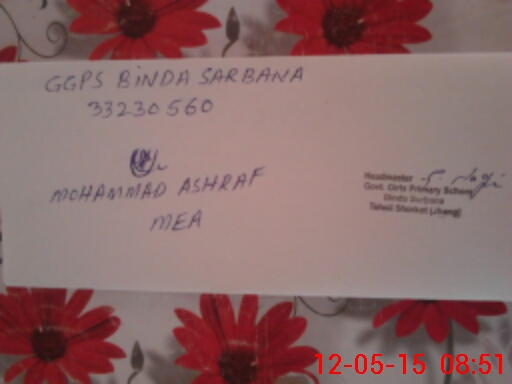 GGPS BINDA SARBANA
33230560
MOHAMMAD ASHRAF
MEA
Headmaster
Govt. Girls Primary School
Binda Sarbana
Tehsil Shorkot (Jhang)
12-05-15 08:51